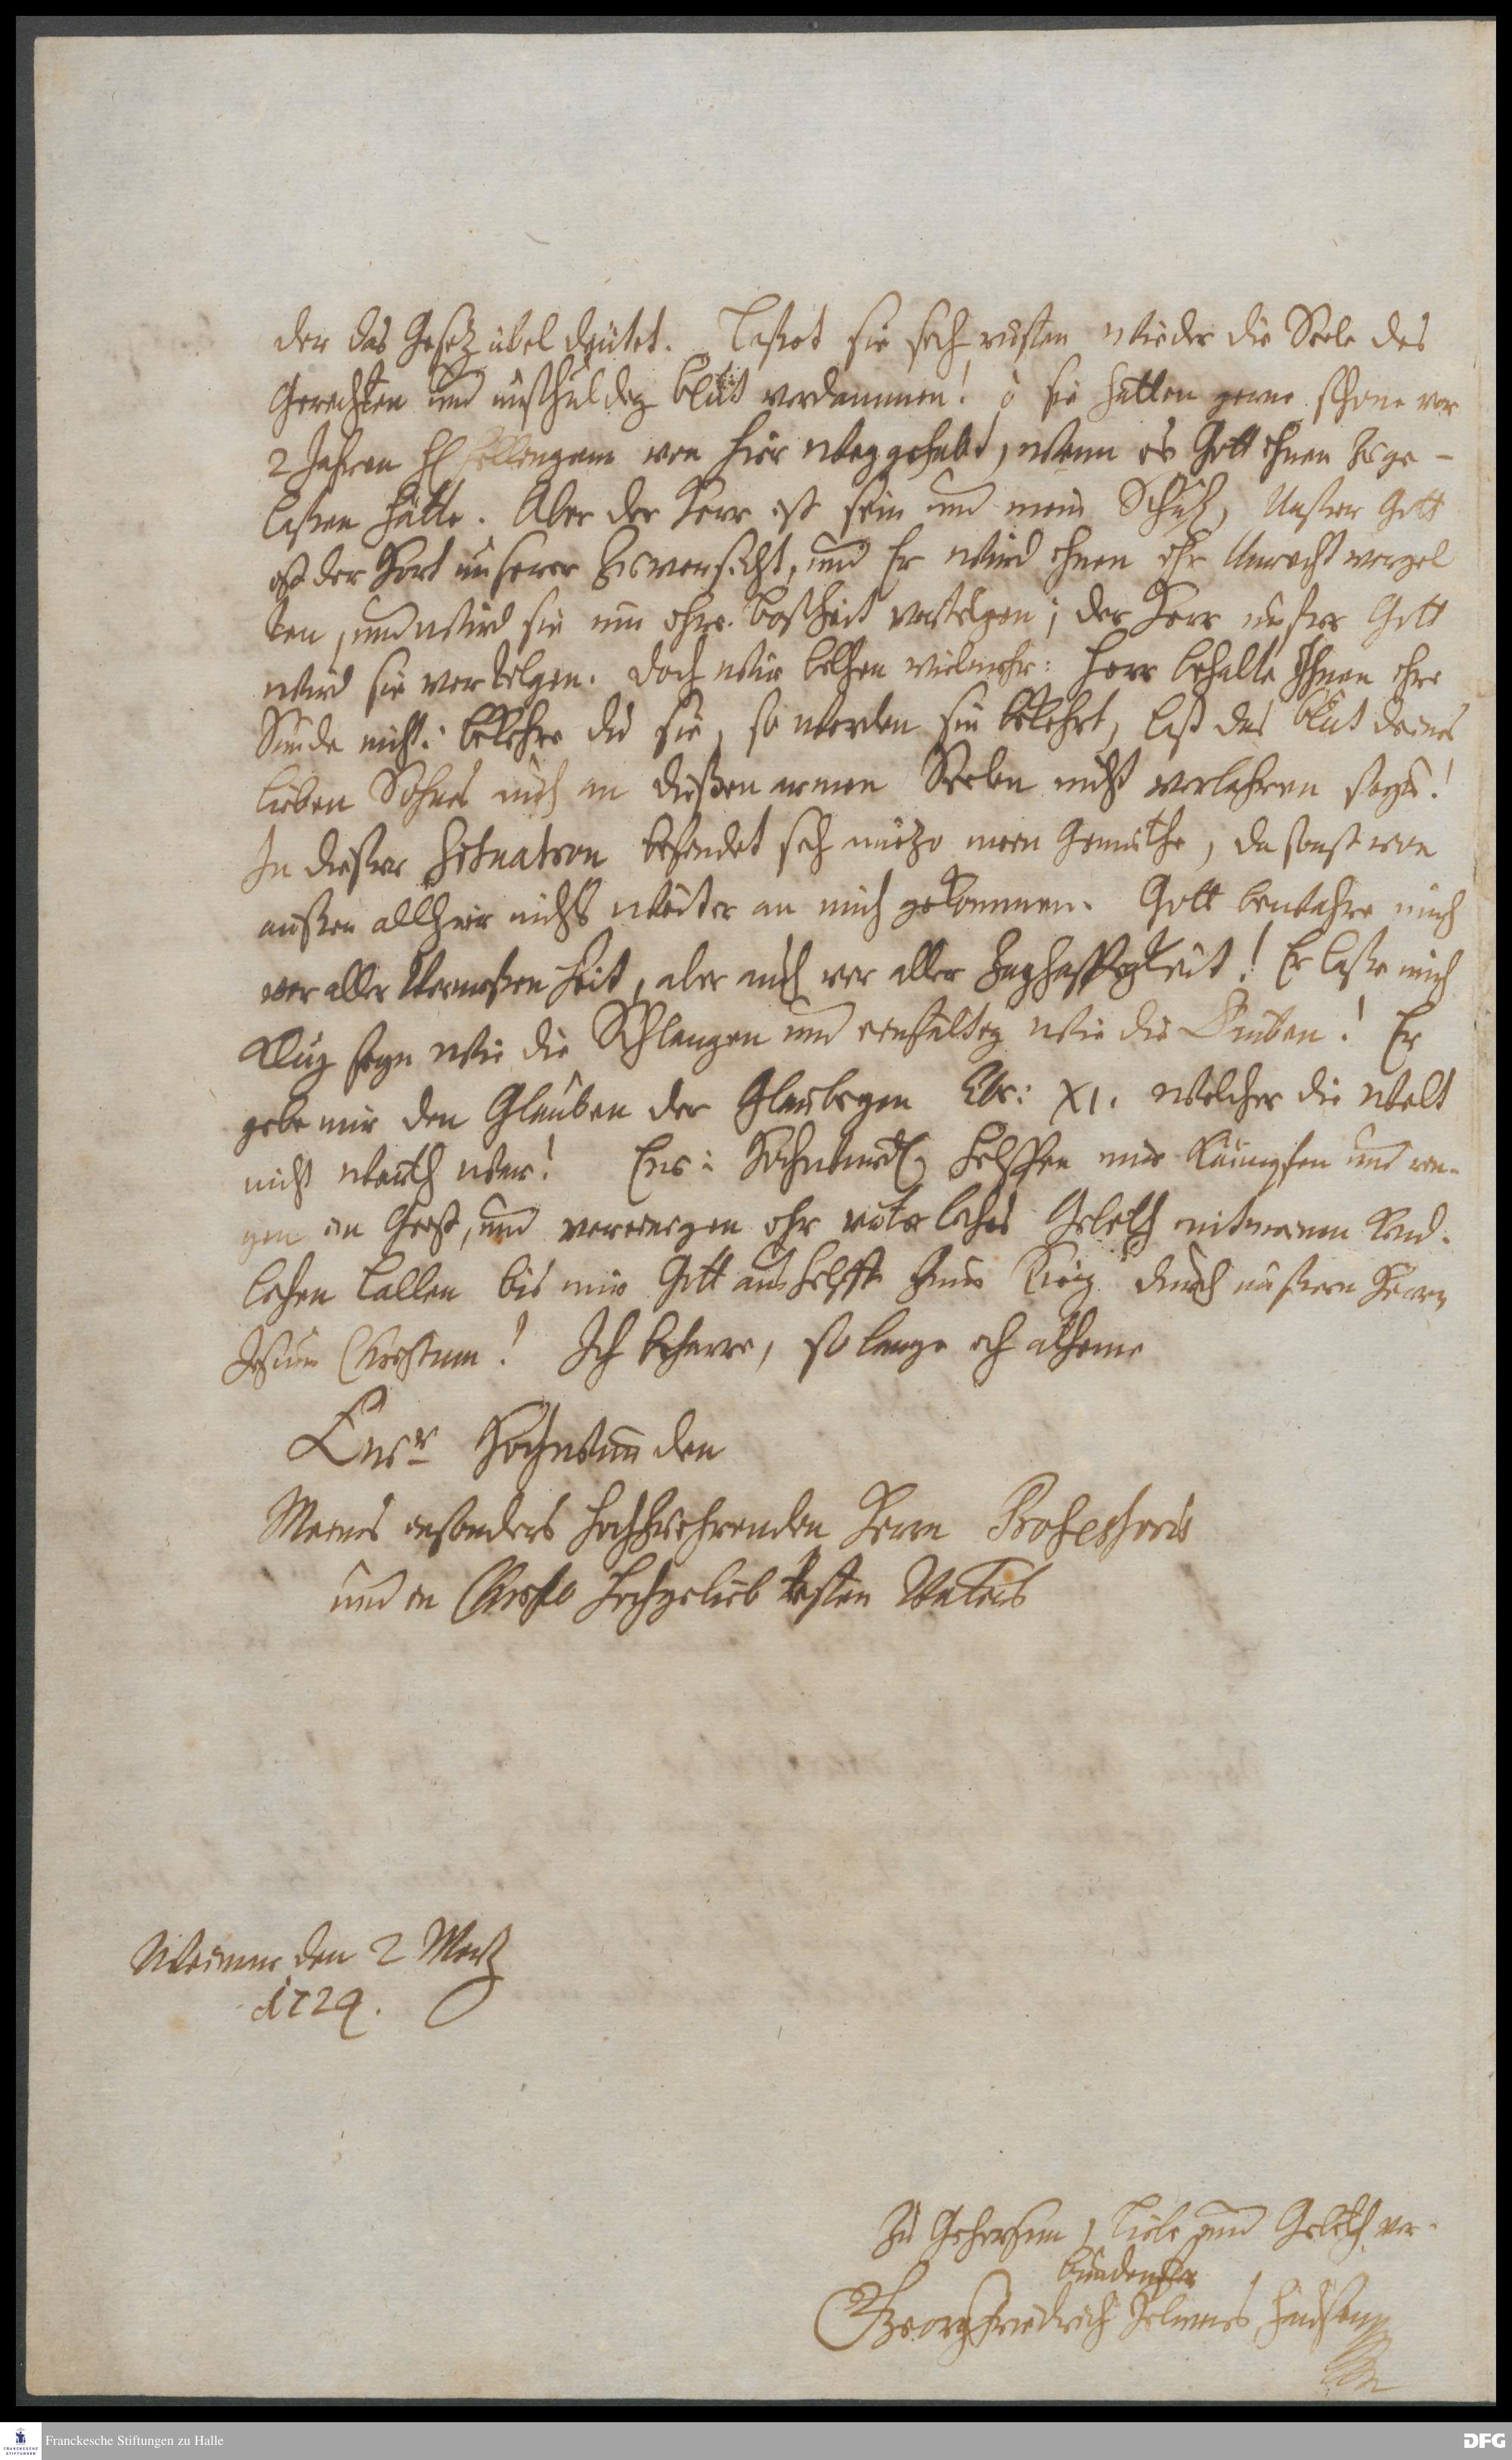 der das Gesetz übel deütet. Laßet sie sich rüsten wieder die Seele des
Gerechten und unschuldig blut verdammen! ô sie hätten gerne schone vor
2 Jahren H. von hier weggehabt, wenn es Gott ihnen zuge-
laßen hätte. Aber der Herr ist sein und mein Schutz, Unßer Gott
ist der Hort unserer Zuversicht, und Er wird ihnen ihr Unrecht vergel
ten, und wird sie um ihre boßheit vertilgen; der Herr unßer Gott
wird sie vertilgen. doch wir bethen vielmehr: Herr behalte Ihnen ihre
Sünde nicht: bekehre du sie, so werden sie bekehrt, laß das blut deines
lieben Sohnes auch an dießen armen Seelen nicht verlohren seyn!
In dießer Situation befindet sich anietzo mein Gemüthe, da sonst von
außen allhier nichts weiter an mich gekommen. Gott bewahre mich
vor aller Vermeßenheit, aher auch vor aller Zaghafftigkeit! Er laße mich
klug seyn wie die Schlangen und einfältig wie die Tauben! Er
gebe mir den Glauben der Glaubigen Ebr: XI. welcher die Welt
nicht werth war! Ew: Hochwürd. helffen mir kämpfen und rin-
gen im Geist, und vereinigen ihr väterliches Gebeth mit meinem kind-
lichen Lallen bis mir Gott aushelffe zum Sieg durch unßern Herrn
Jesum Christum! Ich beharre, so lange ich atheme
Ewr. Hochwürden
Meines insonders hochzuehrenden Herrn Professoris
und in Christo hochgeliebtesten Vaters
Weimar den 2 Mertz
1729.
Zu Gehorsam, Liebe und Gebeth ver-
bundenster
Georg Friedrich